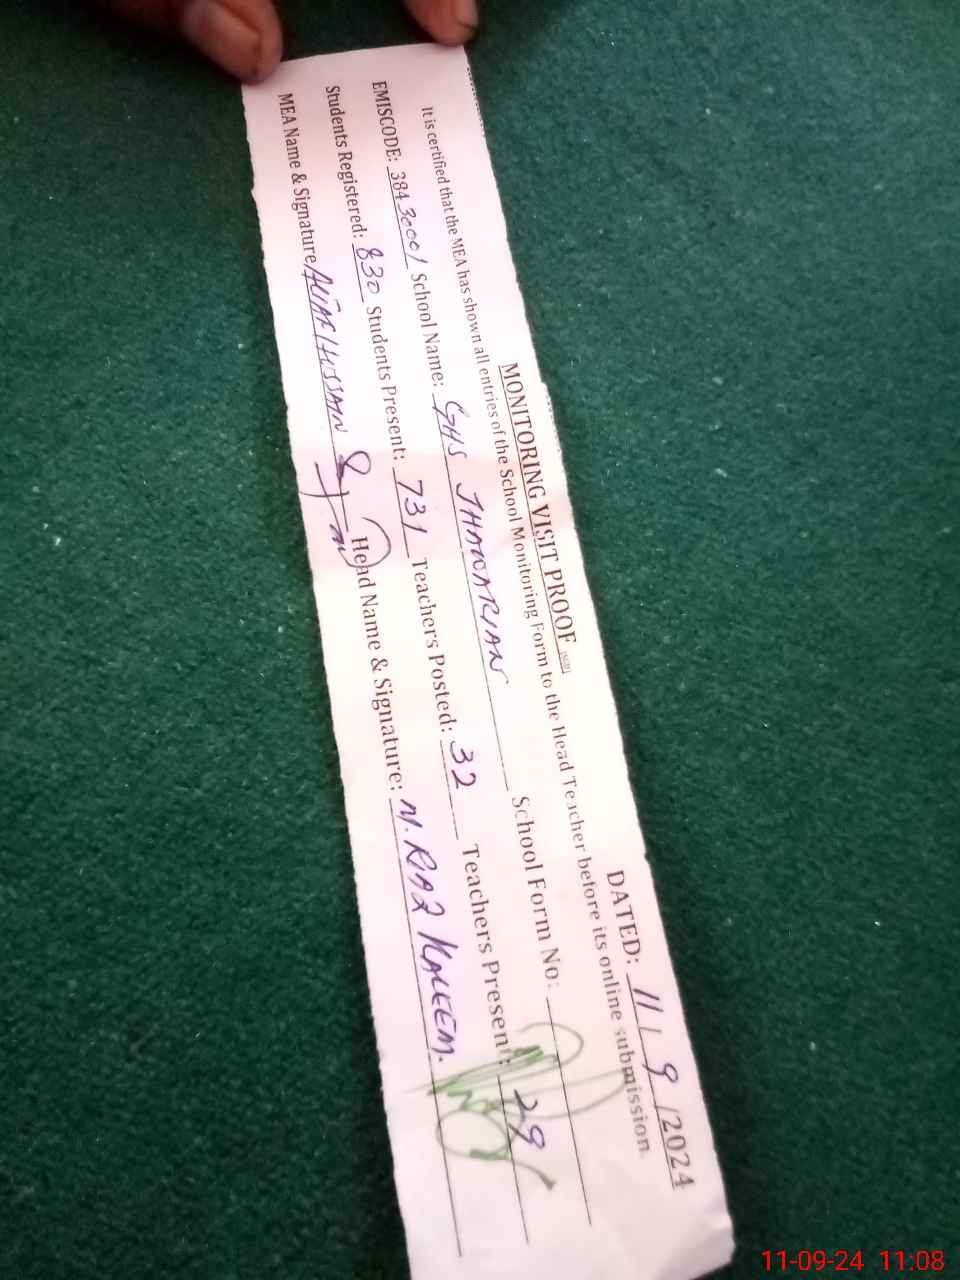 MONITORING VISIT PROOF
DATED: 11/9/2024
It is certified that the MEA has shown all entries of the School Monitoring Form to the Head Teacher before its online submission.
EMISCODE: 38430001 School Name: GHS JHAWARIAN School Form No:
Students Registered: 830 Students Present: 731 Teachers Posted: 32 Teachers Present: 29
MEA Name & Signature HUSSAIN Head Name & Signature: M. RIAZ KALEEM.
11-09-24 11:08